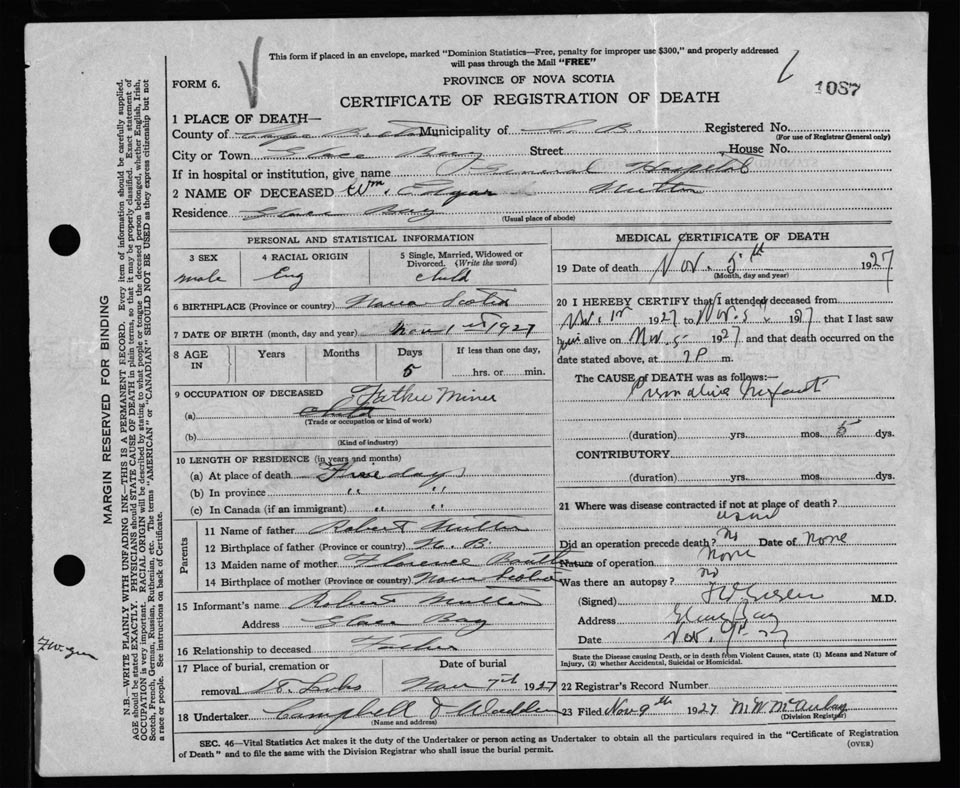 This form if placed in an envelope, marked "Dominion Statistics—Free, penalty for improper use $300," and properly addressed
will pass through the Mail "FREE"
FORM 6.
PROVINCE OF NOVA SCOTIA
1087
CERTIFICATE OF REGISTRATION OF DEATH
1 PLACE OF DEATH—
County of Cape Breton Municipality of C. B. Registered No.
(For use of Registrar General only)
City or Town Glace Bay Street House No.
If in hospital or institution, give name General Hospital
2 NAME OF DECEASED Wm. Edgar
Residence Glace Bay
(Usual place of abode)
PERSONAL AND STATISTICAL INFORMATION
3 SEX male
4 RACIAL ORIGIN Eng
5 Single, Married, Widowed or Divorced. (Write the word) child
6 BIRTHPLACE (Province or country) Nova Scotia
7 DATE OF BIRTH (month, day and year) Nov 1st 1927
8 AGE IN Years Months Days 5 If less than one day, hrs. or min.
9 OCCUPATION OF DECEASED Father Miner
(a) child
(Trade or occupation or kind of work)
(b)
(Kind of industry)
10 LENGTH OF RESIDENCE (in years and months)
(a) At place of death Five days
(b) In province " "
(c) In Canada (if an immigrant) " "
Parents
11 Name of father Robert
12 Birthplace of father (Province or country) N. B.
13 Maiden name of mother Florence
14 Birthplace of mother (Province or country) Nova Scotia
15 Informant's name Robert
Address Glace Bay
16 Relationship to deceased Father
17 Place of burial, cremation or removal Date of burial
Nov 7th 1927
18 Undertaker Campbell &
(Name and address)
MEDICAL CERTIFICATE OF DEATH
19 Date of death Nov. 5th 1927
(Month, day and year)
20 I HEREBY CERTIFY that I attended deceased from
Nov. 1st 1927 to Nov. 5 1927 that I last saw
him alive on Nov. 5 1927 and that death occurred on the
date stated above, at 7 P m.
The CAUSE of DEATH was as follows:—
Premature Infant
(duration) yrs. mos. 5 dys.
CONTRIBUTORY
(duration) yrs. mos. dys.
21 Where was disease contracted if not at place of death?
Did an operation precede death? No Date of None
Nature of operation None
Was there an autopsy? no
(Signed) M.D.
Address Glace Bay
Date Nov. 9th 27
State the Disease causing Death, or in death from Violent Causes, state (1) Means and Nature of
Injury, (2) whether Accidental, Suicidal or Homicidal.
22 Registrar's Record Number
23 Filed Nov 9th 1927 M. W. McAulay
(Division Registrar)
SEC. 46—Vital Statistics Act makes it the duty of the Undertaker or person acting as Undertaker to obtain all the particulars required in the "Certificate of Registration
of Death" and to file the same with the Division Registrar who shall issue the burial permit.
(OVER)
MARGIN RESERVED FOR BINDING
N.B.—WRITE PLAINLY WITH UNFADING INK—THIS IS A PERMANENT RECORD. Every item of information should be carefully supplied.
AGE should be stated EXACTLY. PHYSICIANS should STATE CAUSE OF DEATH in plain terms, so that it may be properly classified. Exact statement of
OCCUPATION is very important. RACIAL ORIGIN will be described by stating to what people or tongue the deceased person belonged, whether English, Irish,
Scotch, French, German, Russian, Ruthenian, etc. The terms "AMERICAN" or "CANADIAN" SHOULD NOT BE USED as they express citizenship but not
a race or people. See instructions on back of Certificate.